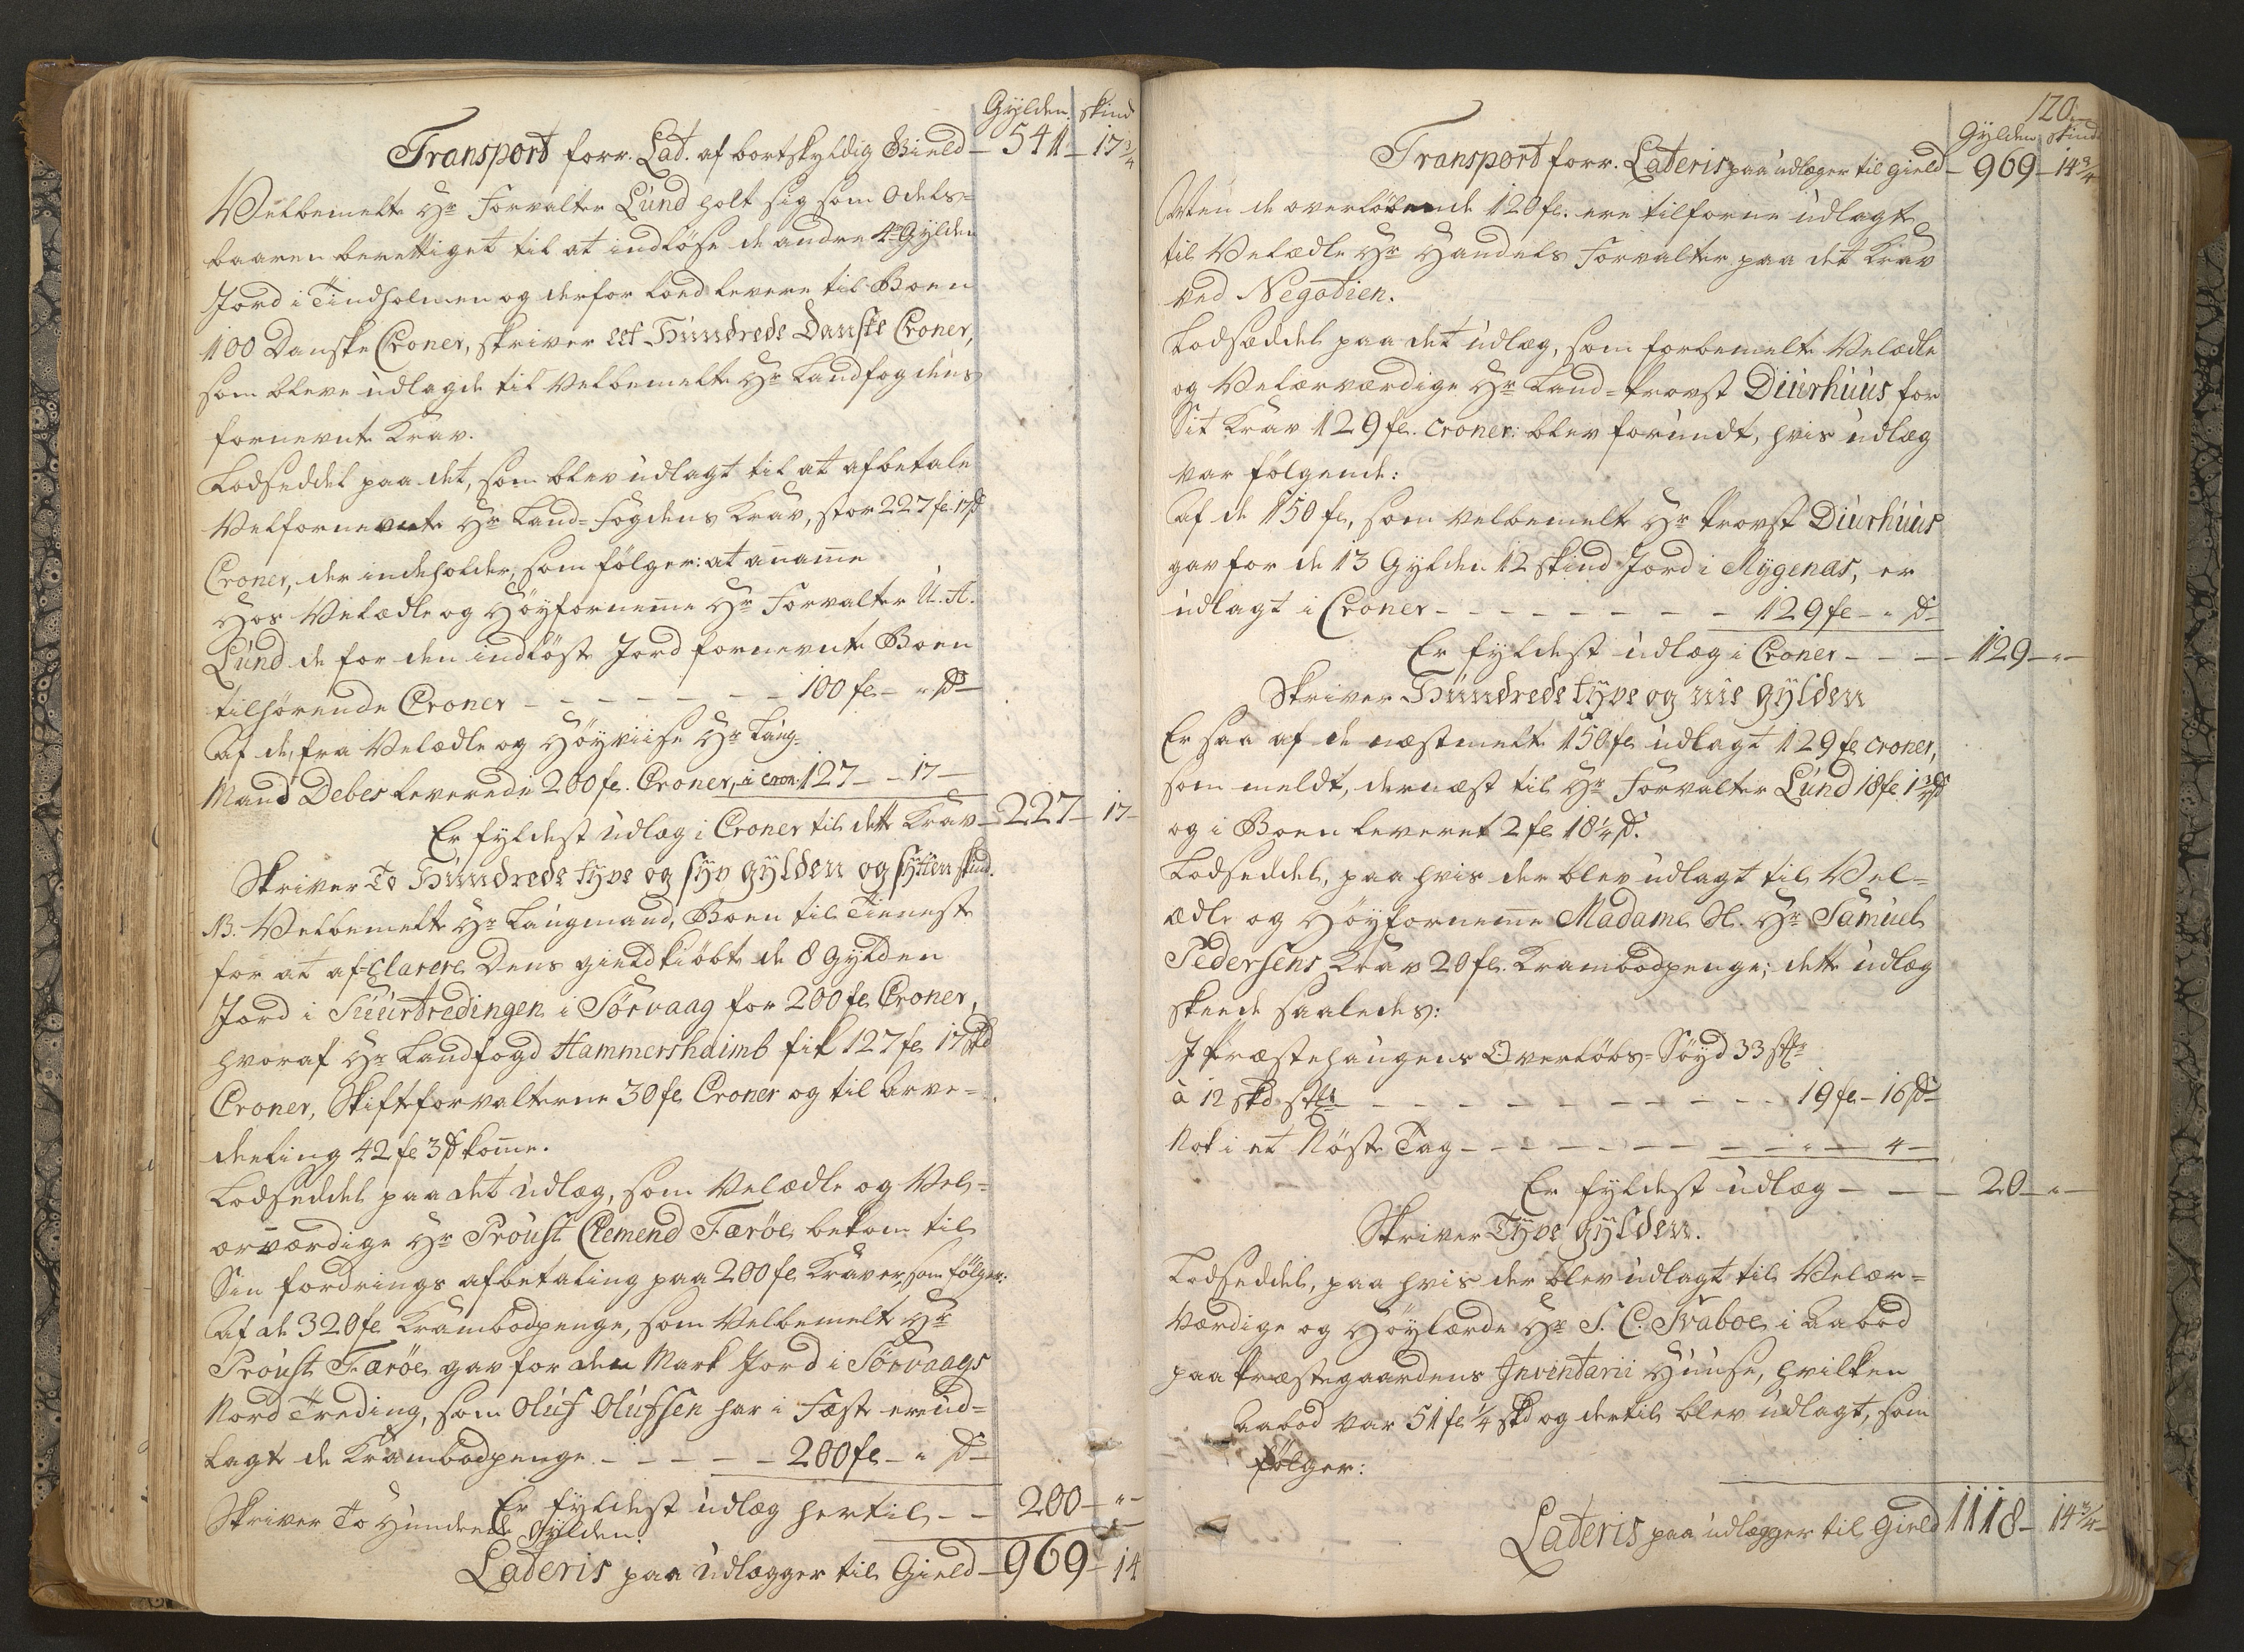 Gylden skind
Transport forr. Lat. af bortskyldig Gield – 541 – 17¾
Velbemelte Hr Forvalter Lund holt sig som Odels=
baaren berettiget til at indløse de andre 4re Gylden
Jord i Tindholmen og derfor loed levere til Boen
100 Danske Croner, skriver eet Hundrede Danske Croner,
som bleve udlagde til Velbemelte Hr Landfogdens
fornevnte Krav.
Lodseddel paa det, som blev udlagt til at afbetale
Velfornevnte Hr Land=Fogdens Krav, stor 227 fl. 17 s
Croner, der indeholder, som følger: at anam̄e
Hos Velædle og Høyfornem̄e Hr Forvalter U. A.
Lund de for den indløste Jord fornevnte Boen
tilhørende Croner – – – – – – – 100 fl – " s –
Af de, fra Velædle og Høyviise Hr Laug=
Mand Debes leverede 200 fl. Croner, i cron. 127 – – 17 –
Er fyldest udlæg i Croner til dette Krav – 227 – 17 –
Skriver To Hundrede tyve og syv gylden og sytten skind.
NB. Velbemelte Hr Laugmand, Boen til Tieneste
for at af=clarere Dens gield kiøbte de 8 Gylden
Jord i Suurtredingen i Sørvaag for 200 fl Croner,
hvoraf Hr Landfogd Hammershaimb fik 127 fl 17 skd
Croner, Skifteforvalterne 30 fl Croner og til Arve=
deeling 42 fl 3 s kom̄e.
Lodseddel paa det udlæg, som Velædle og Vel=
ærværdige Hr Proust Clemend Færøe bekom til
Sin fordrings afbetaling paa 200 fl Kraver, som følger:
Af de 320 fl Krambodpenge, som Velbemelte Hr
Proust Færøe gav for den Mark Jord i Sørvaags
Nord Treding, som Oluf Olufsen har i Fæste ere ud=
lagt de Krambodpenge – – – – – 200 fl – " s –
Er fyldest udlæg hertil – – 200 – " –
Skriver To Hundrede Gylden.
Lateris paa Udlægger til Gield – 969 – 14
120.
Gylden skind
Transport forr. Lateris paa udlæger til gield – 969 – 14¾
Men de overløbende 120 fl. ere tilforne udlagt
til Velædle Hr Handels Forvalter paa det Krav
ved Negotien.
Lodsæddel paa det udlæg, som forbemelte Velædle
og Velærværdige Hr Land=Provst Diurhuus for
Sit Krav 129 fl. croner: blev forundt, hvis udlæg
var følgende:
Af de 150 fl, som velbemelte Hr Provst Diurhuus
gav for de 13 Gylden 12 skind Jord i Mygenæs, er
udlagt i Croner – – – – – – – – 129 fl – " s –
Er fyldest udlæg i Croner – – – – 129 – " –
Skriver Hundrede tyve og nie gylden
Er saa af de næstmelte 150 fl udlagt 129 fl croner,
som meldt, dernæst til Hr Forvalter Lund 18 fl 1¾ s
og i Boen leveret 2 fl 18¼ s.
Lodseddel, paa hvis der blev udlagt til Vel=
ædle og Høyfornem̄e Madame Sl. Hr Samuel
Pedersens Krav 20 fl. Krambodpenge; dette udlæg
skeede saaledes:
I Præstehaugens Overløbs=Søyd 33 stkr
à 12 skd stk – – – – – – – – – – – 19 fl – 16 s –
Nok i et Nøste Tag – – – – – – – – – " – 4 –
Er fyldest udlæg – – – 20 – " –
Skriver Tyve gylden.
Lodseddel, paa hvis der blev udlagt til Velær=
Værdige og Høylærde Hr S. C. Svaboe i Aabod
paa Præstegaardens Inventarii Huuse, hvilken
Aabod var 51 fl ¼ skd og dertil blev udlagt, som
følger:
Lateris paa udlægger til Gield 1118 – 14¾ –